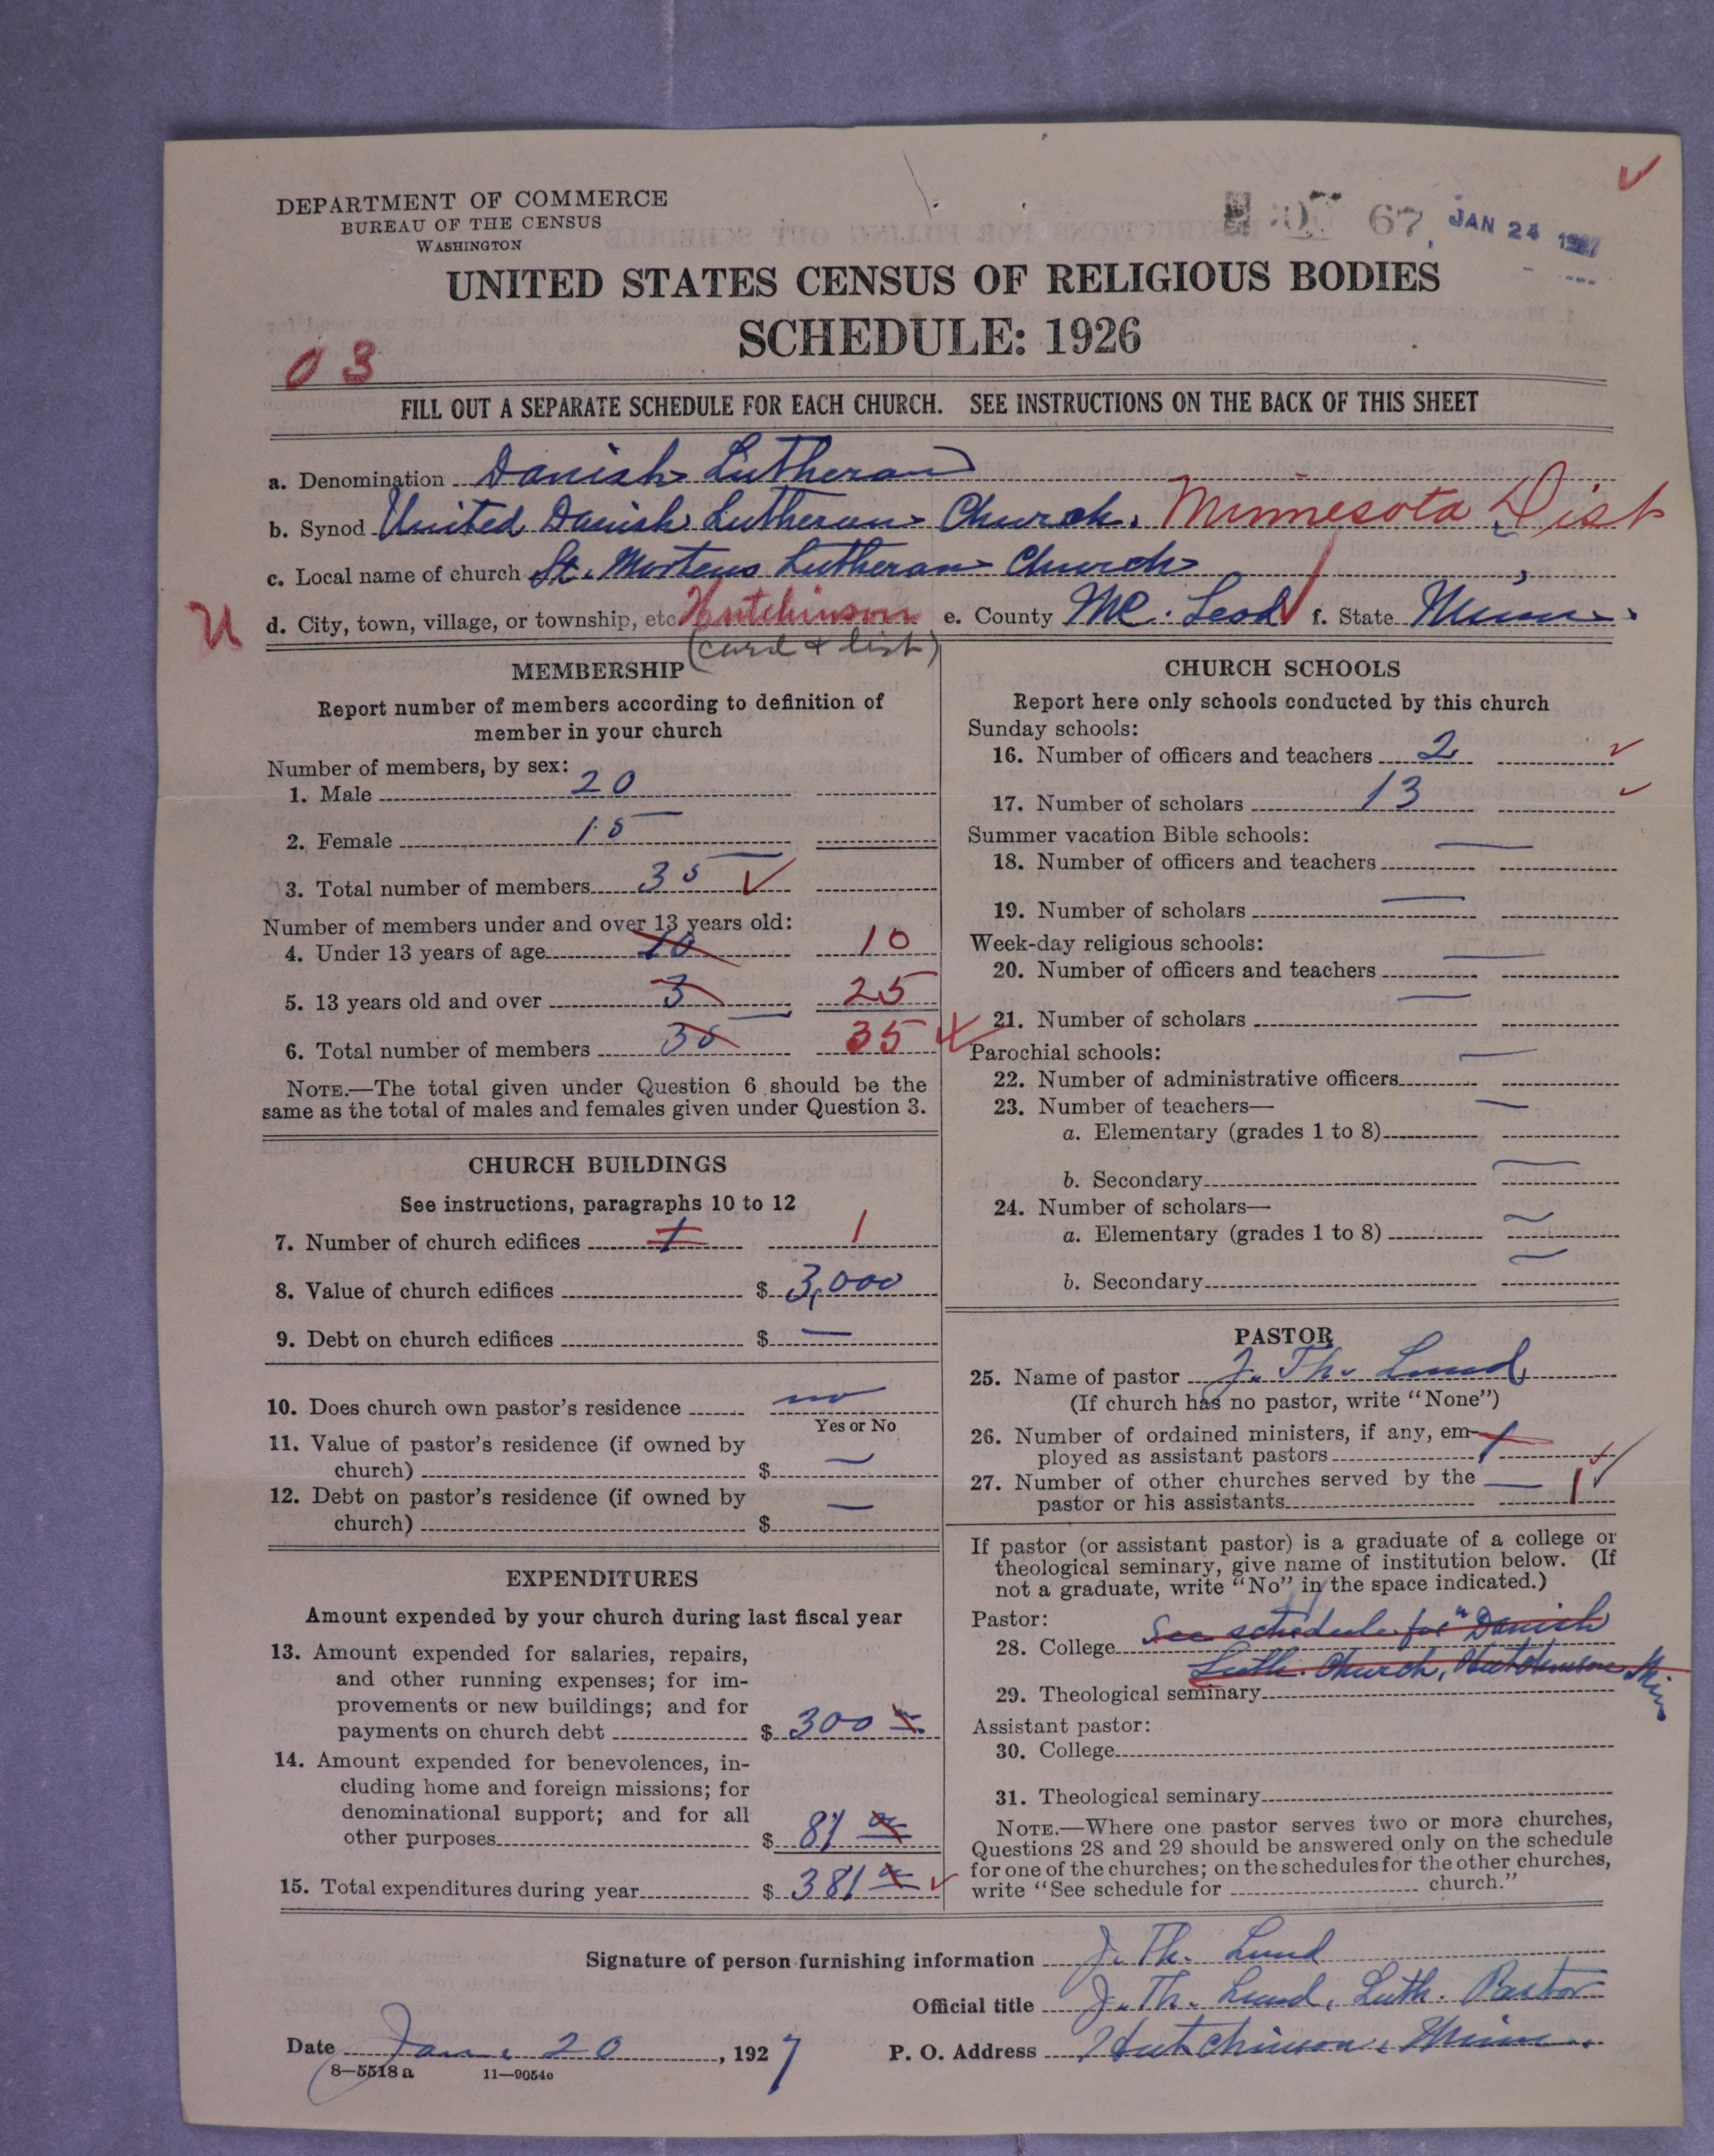 DEPARTMENT OF COMMERCE
BUREAU OF THE CENSUS
WASHINGTON
67 JAN 24 1927
UNITED STATES CENSUS OF RELIGIOUS BODIES
SCHEDULE: 1926
03
FILL OUT A SEPARATE SCHEDULE FOR EACH CHURCH. SEE INSTRUCTIONS ON THE BACK OF THIS SHEET
a. Denomination Danish Lutheran
b. Synod United Danish Lutheran Church. Minnesota Dist
c. Local name of church St. Mortens Lutheran Church
U d. City, town, village, or township, etc Hutchinson e. County Mc. Leod f. State Minn.
(card & list)
MEMBERSHIP
Report number of members according to definition of
member in your church
Number of members, by sex:
1. Male 20
2. Female 15
3. Total number of members 35
Number of members under and over 13 years old:
4. Under 13 years of age 10 10
5. 13 years old and over 3 25
6. Total number of members 35 35
NOTE.—The total given under Question 6 should be the
same as the total of males and females given under Question 3.
CHURCH BUILDINGS
See instructions, paragraphs 10 to 12
7. Number of church edifices 1 1
8. Value of church edifices $ 3,000
9. Debt on church edifices $ —
10. Does church own pastor's residence no
Yes or No
11. Value of pastor's residence (if owned by
church) $ —
12. Debt on pastor's residence (if owned by
church) $ —
EXPENDITURES
Amount expended by your church during last fiscal year
13. Amount expended for salaries, repairs,
and other running expenses; for im-
provements or new buildings; and for
payments on church debt $ 300
14. Amount expended for benevolences, in-
cluding home and foreign missions; for
denominational support; and for all
other purposes $ 81
15. Total expenditures during year $ 381
CHURCH SCHOOLS
Report here only schools conducted by this church
Sunday schools:
16. Number of officers and teachers 2
17. Number of scholars 13
Summer vacation Bible schools:
18. Number of officers and teachers —
19. Number of scholars —
Week-day religious schools:
20. Number of officers and teachers —
21. Number of scholars —
Parochial schools:
22. Number of administrative officers —
23. Number of teachers—
a. Elementary (grades 1 to 8) —
b. Secondary —
24. Number of scholars—
a. Elementary (grades 1 to 8) —
b. Secondary —
PASTOR
25. Name of pastor J. Th. Lund
(If church has no pastor, write "None")
26. Number of ordained ministers, if any, em-
ployed as assistant pastors 1
27. Number of other churches served by the
pastor or his assistants — 1
If pastor (or assistant pastor) is a graduate of a college or
theological seminary, give name of institution below. (If
not a graduate, write "No" in the space indicated.)
Pastor:
28. College See schedule for "Danish
Luth. Church, Hutchinson Minn
29. Theological seminary
Assistant pastor:
30. College
31. Theological seminary
NOTE.—Where one pastor serves two or more churches,
Questions 28 and 29 should be answered only on the schedule
for one of the churches; on the schedules for the other churches,
write "See schedule for church."
Signature of person furnishing information J. Th. Lund
Official title J. Th. Lund, Luth. Pastor
Date Jan. 20, 1927 P. O. Address Hutchinson, Minn.
8—5518 a 11—9054c